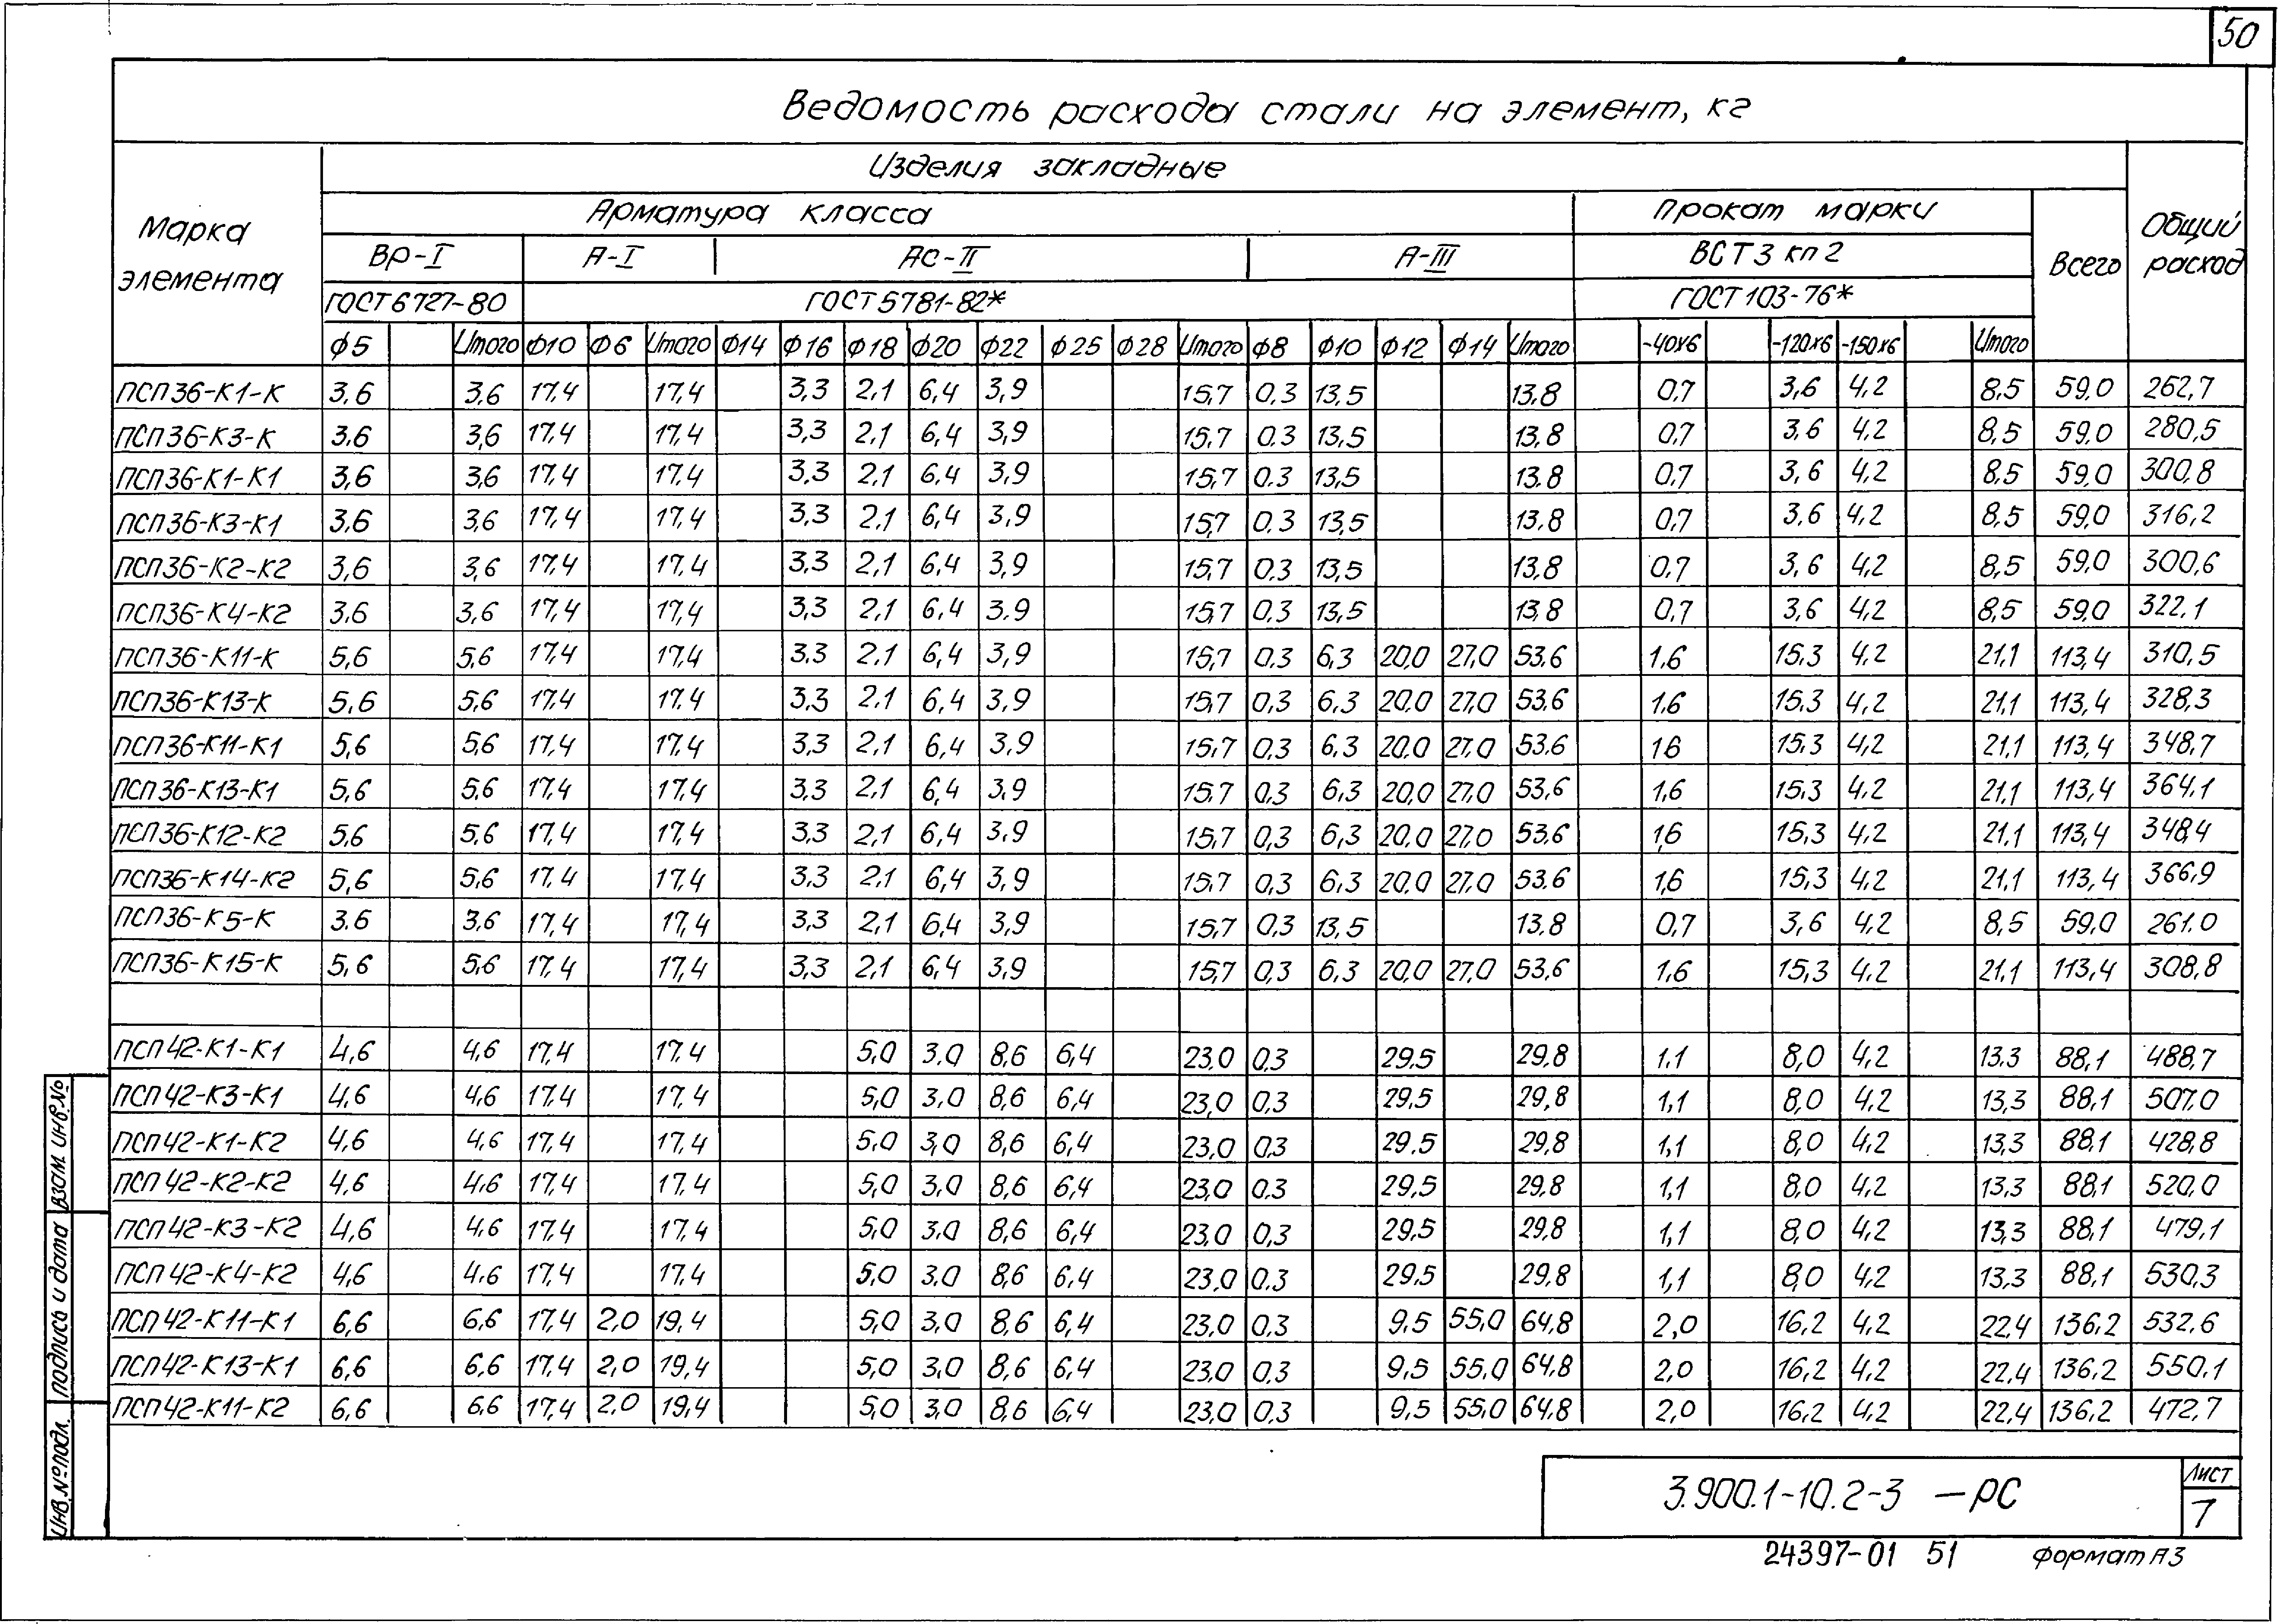 50
Ведомость расхода стали на элемент, кг
Марка элемента
Изделия закладные
Общий расход
Арматура класса
Прокат марки
Всего
Вр-I А-I Ас-II А-III ВСТ3 кп2
ГОСТ 6727-80 ГОСТ 5781-82* ГОСТ 103-76*
Ф5 Итого Ф10 Ф6 Итого Ф14 Ф16 Ф18 Ф20 Ф22 Ф25 Ф28 Итого Ф8 Ф10 Ф12 Ф14 Итого -40х6 -120х6 -150х6 Итого
ПСП36-К1-К 3,6 3,6 17,4 17,4 3,3 2,1 6,4 3,9 15,7 0,3 13,5 13,8 0,7 3,6 4,2 8,5 59,0 262,7
ПСП36-К3-К 3,6 3,6 17,4 17,4 3,3 2,1 6,4 3,9 15,7 0,3 13,5 13,8 0,7 3,6 4,2 8,5 59,0 280,5
ПСП36-К1-К1 3,6 3,6 17,4 17,4 3,3 2,1 6,4 3,9 15,7 0,3 13,5 13,8 0,7 3,6 4,2 8,5 59,0 300,8
ПСП36-К3-К1 3,6 3,6 17,4 17,4 3,3 2,1 6,4 3,9 15,7 0,3 13,5 13,8 0,7 3,6 4,2 8,5 59,0 316,2
ПСП36-К2-К2 3,6 3,6 17,4 17,4 3,3 2,1 6,4 3,9 15,7 0,3 13,5 13,8 0,7 3,6 4,2 8,5 59,0 300,6
ПСП36-К4-К2 3,6 3,6 17,4 17,4 3,3 2,1 6,4 3,9 15,7 0,3 13,5 13,8 0,7 3,6 4,2 8,5 59,0 322,1
ПСП36-К11-К 5,6 5,6 17,4 17,4 3,3 2,1 6,4 3,9 15,7 0,3 6,3 20,0 27,0 53,6 1,6 15,3 4,2 21,1 113,4 310,5
ПСП36-К13-К 5,6 5,6 17,4 17,4 3,3 2,1 6,4 3,9 15,7 0,3 6,3 20,0 27,0 53,6 1,6 15,3 4,2 21,1 113,4 328,3
ПСП36-К11-К1 5,6 5,6 17,4 17,4 3,3 2,1 6,4 3,9 15,7 0,3 6,3 20,0 27,0 53,6 1,6 15,3 4,2 21,1 113,4 348,7
ПСП36-К13-К1 5,6 5,6 17,4 17,4 3,3 2,1 6,4 3,9 15,7 0,3 6,3 20,0 27,0 53,6 1,6 15,3 4,2 21,1 113,4 364,1
ПСП36-К12-К2 5,6 5,6 17,4 17,4 3,3 2,1 6,4 3,9 15,7 0,3 6,3 20,0 27,0 53,6 1,6 15,3 4,2 21,1 113,4 348,4
ПСП36-К14-К2 5,6 5,6 17,4 17,4 3,3 2,1 6,4 3,9 15,7 0,3 6,3 20,0 27,0 53,6 1,6 15,3 4,2 21,1 113,4 366,9
ПСП36-К5-К 3,6 3,6 17,4 17,4 3,3 2,1 6,4 3,9 15,7 0,3 13,5 13,8 0,7 3,6 4,2 8,5 59,0 261,0
ПСП36-К15-К 5,6 5,6 17,4 17,4 3,3 2,1 6,4 3,9 15,7 0,3 6,3 20,0 27,0 53,6 1,6 15,3 4,2 21,1 113,4 308,8
ПСП42-К1-К1 4,6 4,6 17,4 17,4 5,0 3,0 8,6 6,4 23,0 0,3 29,5 29,8 1,1 8,0 4,2 13,3 88,1 488,7
ПСП42-К3-К1 4,6 4,6 17,4 17,4 5,0 3,0 8,6 6,4 23,0 0,3 29,5 29,8 1,1 8,0 4,2 13,3 88,1 507,0
ПСП42-К1-К2 4,6 4,6 17,4 17,4 5,0 3,0 8,6 6,4 23,0 0,3 29,5 29,8 1,1 8,0 4,2 13,3 88,1 428,8
ПСП42-К2-К2 4,6 4,6 17,4 17,4 5,0 3,0 8,6 6,4 23,0 0,3 29,5 29,8 1,1 8,0 4,2 13,3 88,1 520,0
ПСП42-К3-К2 4,6 4,6 17,4 17,4 5,0 3,0 8,6 6,4 23,0 0,3 29,5 29,8 1,1 8,0 4,2 13,3 88,1 479,1
ПСП42-К4-К2 4,6 4,6 17,4 17,4 5,0 3,0 8,6 6,4 23,0 0,3 29,5 29,8 1,1 8,0 4,2 13,3 88,1 530,3
ПСП42-К11-К1 6,6 6,6 17,4 2,0 19,4 5,0 3,0 8,6 6,4 23,0 0,3 9,5 55,0 64,8 2,0 16,2 4,2 22,4 136,2 532,6
ПСП42-К13-К1 6,6 6,6 17,4 2,0 19,4 5,0 3,0 8,6 6,4 23,0 0,3 9,5 55,0 64,8 2,0 16,2 4,2 22,4 136,2 550,1
ПСП42-К11-К2 6,6 6,6 17,4 2,0 19,4 5,0 3,0 8,6 6,4 23,0 0,3 9,5 55,0 64,8 2,0 16,2 4,2 22,4 136,2 472,7
Взам. инв.№
Подпись и дата
Инв.№подл.
3.900.1-10.2-3 -РС
Лист
7
24397-01 51 Формат А3